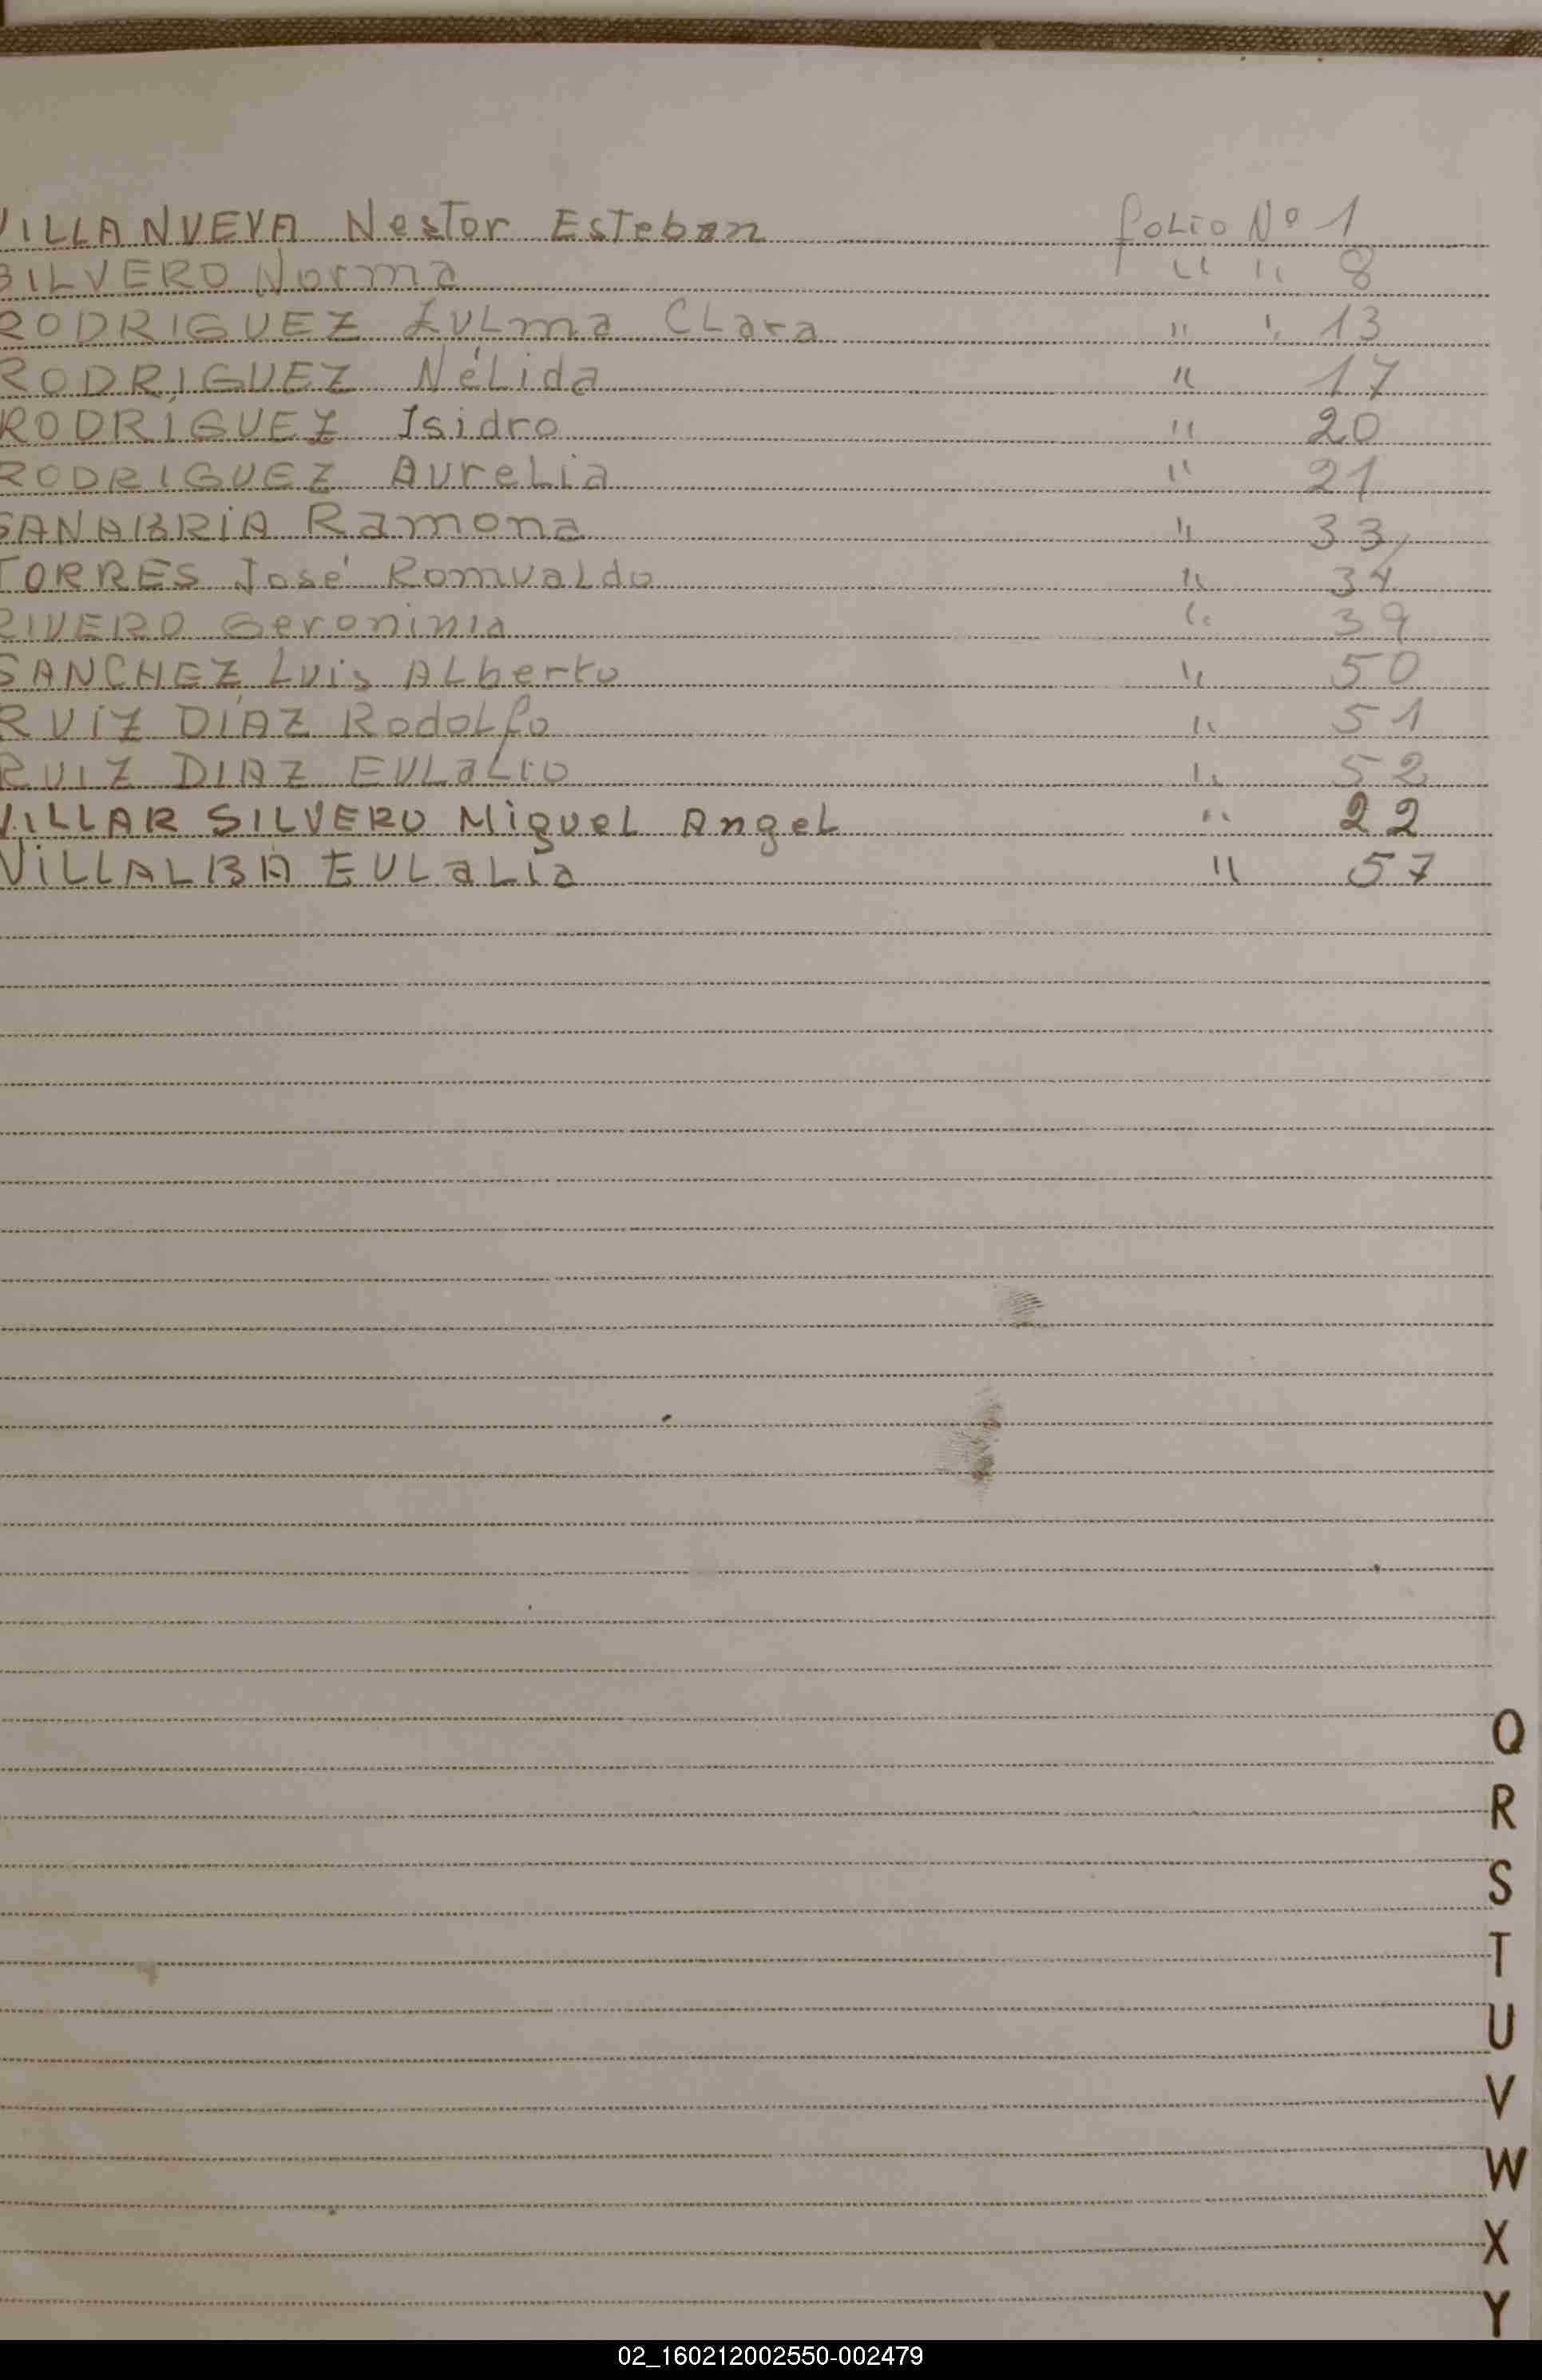 VILLANUEVA Nestor Esteban folio Nº 1
SILVERO Norma " " 8
RODRIGUEZ Zulma Clara " " 13
RODRIGUEZ Nélida " 17
RODRÍGUEZ Isidro " 20
RODRIGUEZ Aurelia " 21
SANABRIA Ramona " 33
TORRES José Romualdo " 34
RIVERO Geronima " 39
SANCHEZ Luis Alberto " 50
RUÍZ DÍAZ Rodolfo " 51
RUIZ DIAZ Eulalio " 52
VILLAR SILVERO Miguel Angel " 22
VILLALBA Eulalia " 57
Q
R
S
T
U
V
W
X
Y
02_160212002550-002479